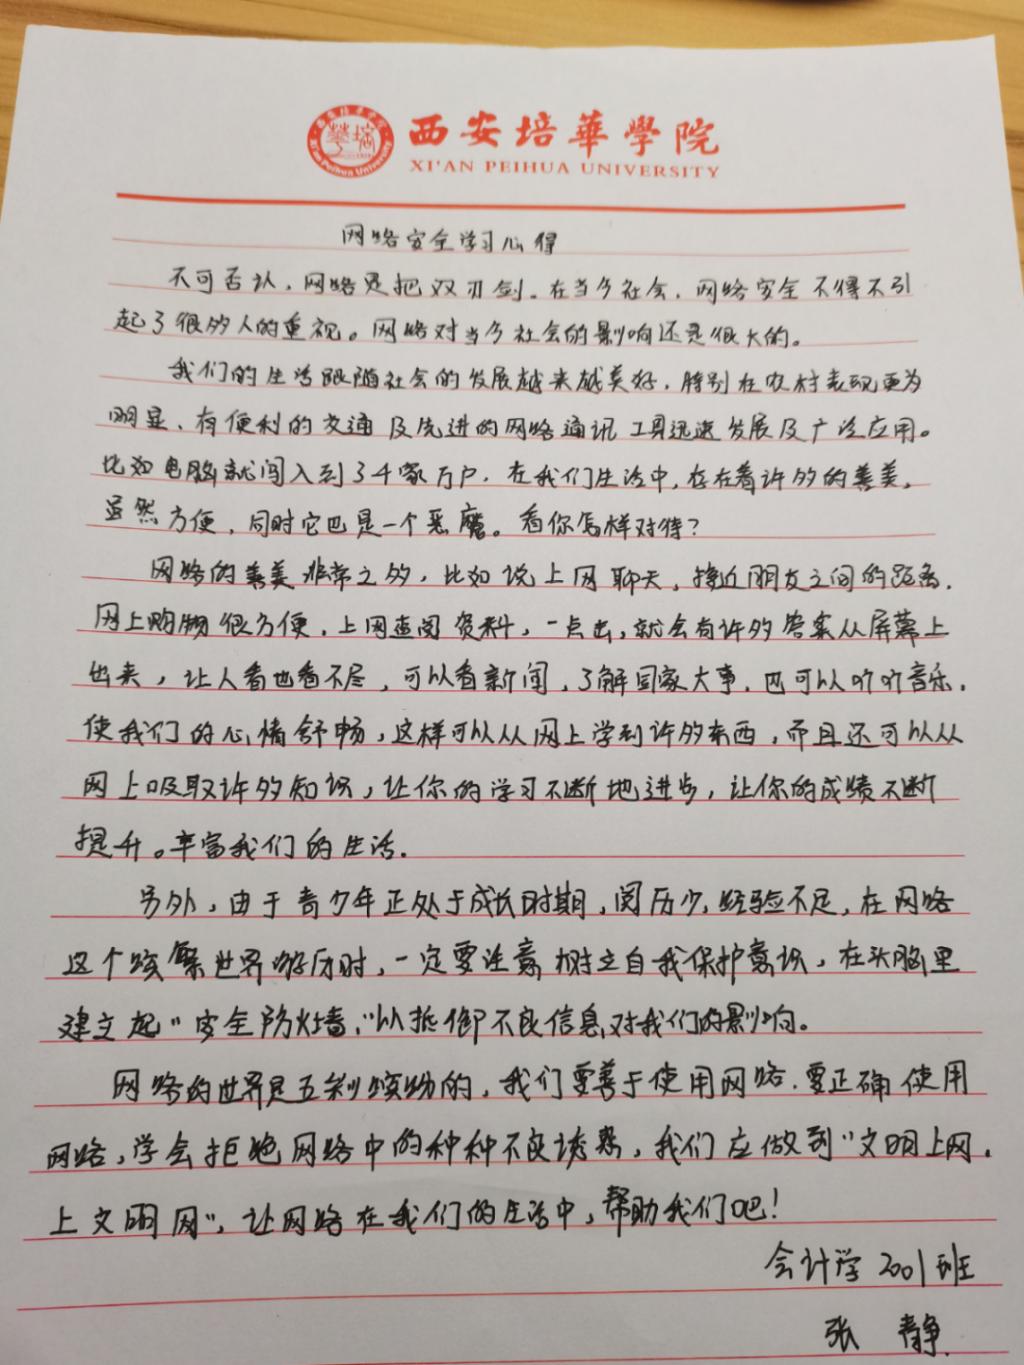 西安培華學院
XI'AN PEIHUA UNIVERSITY
网络安全学习心得
不可否认，网络是把双刃剑。在当今社会，网络安全不得不引
起了很多人的重视。网络对当今社会的影响还是很大的。
我们的生活跟随社会的发展越来越美好，特别在农村表现更为
明显、有便利的交通及先进的网络通讯工具迅速发展及广泛应用。
比如电脑就闯入到了千家万户，在我们生活中，存在着许多的善美，
虽然方便，同时它也是一个恶魔。看你怎样对待？
网络的善美非常之多，比如说上网聊天，接近朋友之间的距离，
网上购物很方便，上网查阅资料，一点击，就会有许多答案从屏幕上
出来，让人看也看不尽，可以看新闻，了解国家大事，也可以听听音乐，
使我们的心情舒畅，这样可以从网上学到许多东西，而且还可以从
网上吸取许多知识，让你的学习不断地进步，让你的成绩不断
提升。丰富我们的生活．
另外，由于青少年正处于成长时期，阅历少，经验不足，在网络
这个缤繁世界游历时，一定要注意树立自我保护意识，在头脑里
建立起"安全防火墙，"以抵御不良信息对我们的影响。
网络的世界是五彩缤纷的，我们要善于使用网络．要正确使用
网络，学会拒绝网络中的种种不良诱惑，我们应做到"文明上网，
上文明网"，让网络在我们的生活中，帮助我们吧！
会计学2001班
张静